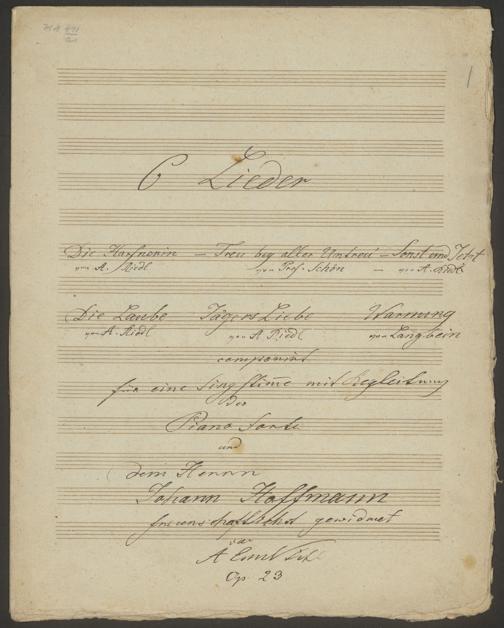 1
6 Lieder
Die Harfnerin – Treu bey aller Untreu – Sonst und Jetzt
von A. Riedl von Prof. Schön – von A. Riedl
Die Laube Jägers Liebe Warnung
von A. Riedl von A. Riedl von Langbein
componirt
für eine Singstime mit Begleitung
des
Piano forte
und
dem Herrn
Johann Hoffmann
freundschaftlichst gewidmet
von
A Emil Titl
Op. 23